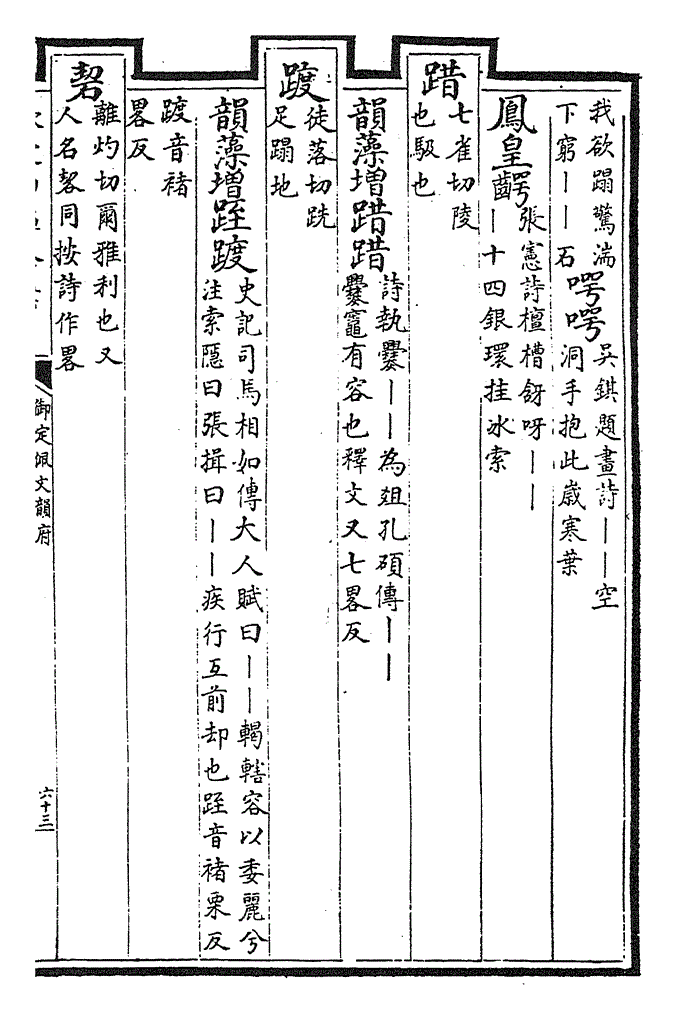 我欲蹋驚湍
下窮｜｜石
㗁㗁
吳錤題畫詩｜｜空
洞手抱此歲寒葉
鳳皇齶
張憲詩檀槽谺呀｜｜
｜十四銀環挂冰索
踖
七雀切陵
也馺也
韻藻增踖踖
詩執爨｜｜為俎孔碩傳｜｜
爨竈有容也釋文又七畧反
踱
徒落切跣
足蹋地
韻藻增跮踱
史記司馬相如傳大人賦曰｜｜輵轄容以委麗兮
注索隱曰張揖曰｜｜疾行互前却也跮音褚栗反
踱音褚
畧反
䂮
離灼切爾雅利也又
人名䂮同按詩作畧
御定佩文韻府
六十三